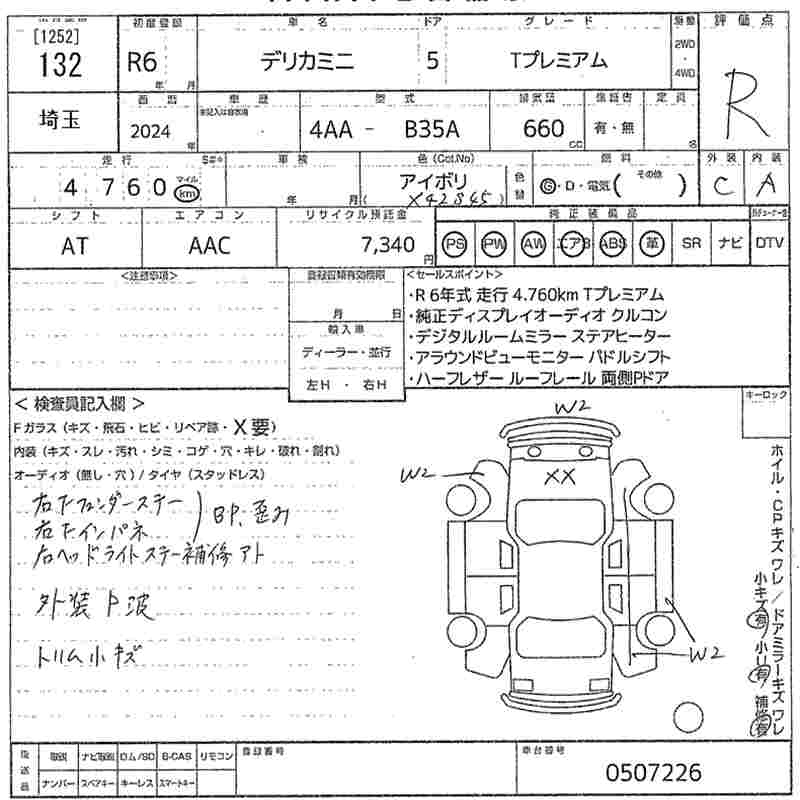 [1252]
132
初度登録
車名
ドア
グレード
駆動
評価点
R6
年 月
デリカミニ
5
Tプレミアム
2WD
・
4WD
R
埼玉
西暦
車歴
型式
排気量
保証書
定員
2024
年
4AA - B35A
660
cc
有・無
名
走行
車検
色(Col.No)
色替
燃料
外装
内装
4760
マイル
km
年 月
アイボリ
(X42845)
G・D・電気(その他)
C
A
シフト
エアコン
リサイクル預託金
純正装備品
AT
AAC
7,340
円
PS PW AW エアB ABS 革 SR ナビ DTV
<注意事項>
登録書類有効期限
月 日
輸入車
ディーラー・並行
左H ・ 右H
<セールスポイント>
・R6年式 走行 4.760km Tプレミアム
・純正ディスプレイオーディオ クルコン
・デジタルルームミラー ステアヒーター
・アラウンドビューモニター パドルシフト
・ハーフレザー ルーフレール 両側Pドア
< 検査員記入欄 >
キーロック
Fガラス(キズ・飛石・ヒビ・リペア跡・X要)
内装(キズ・スレ・汚れ・シミ・コゲ・穴・キレ・破れ・割れ)
オーディオ(無し・穴)/タイヤ(スタッドレス)
右フェンダーステー
右インパネ
BP、歪み
右ヘッドライトステー補修アト
外装 P 波
トリム小キズ
W2
W2
XX
W2
ホイル・CPキズワレ/ドアミラーキズワレ
小キズ有/小リ有 補修有
後送品
取説 ナビ取説 ロム/SD B-CAS リモコン
ナンバー スペアキー キーレス スマートキー
登録番号
車台番号
0507226